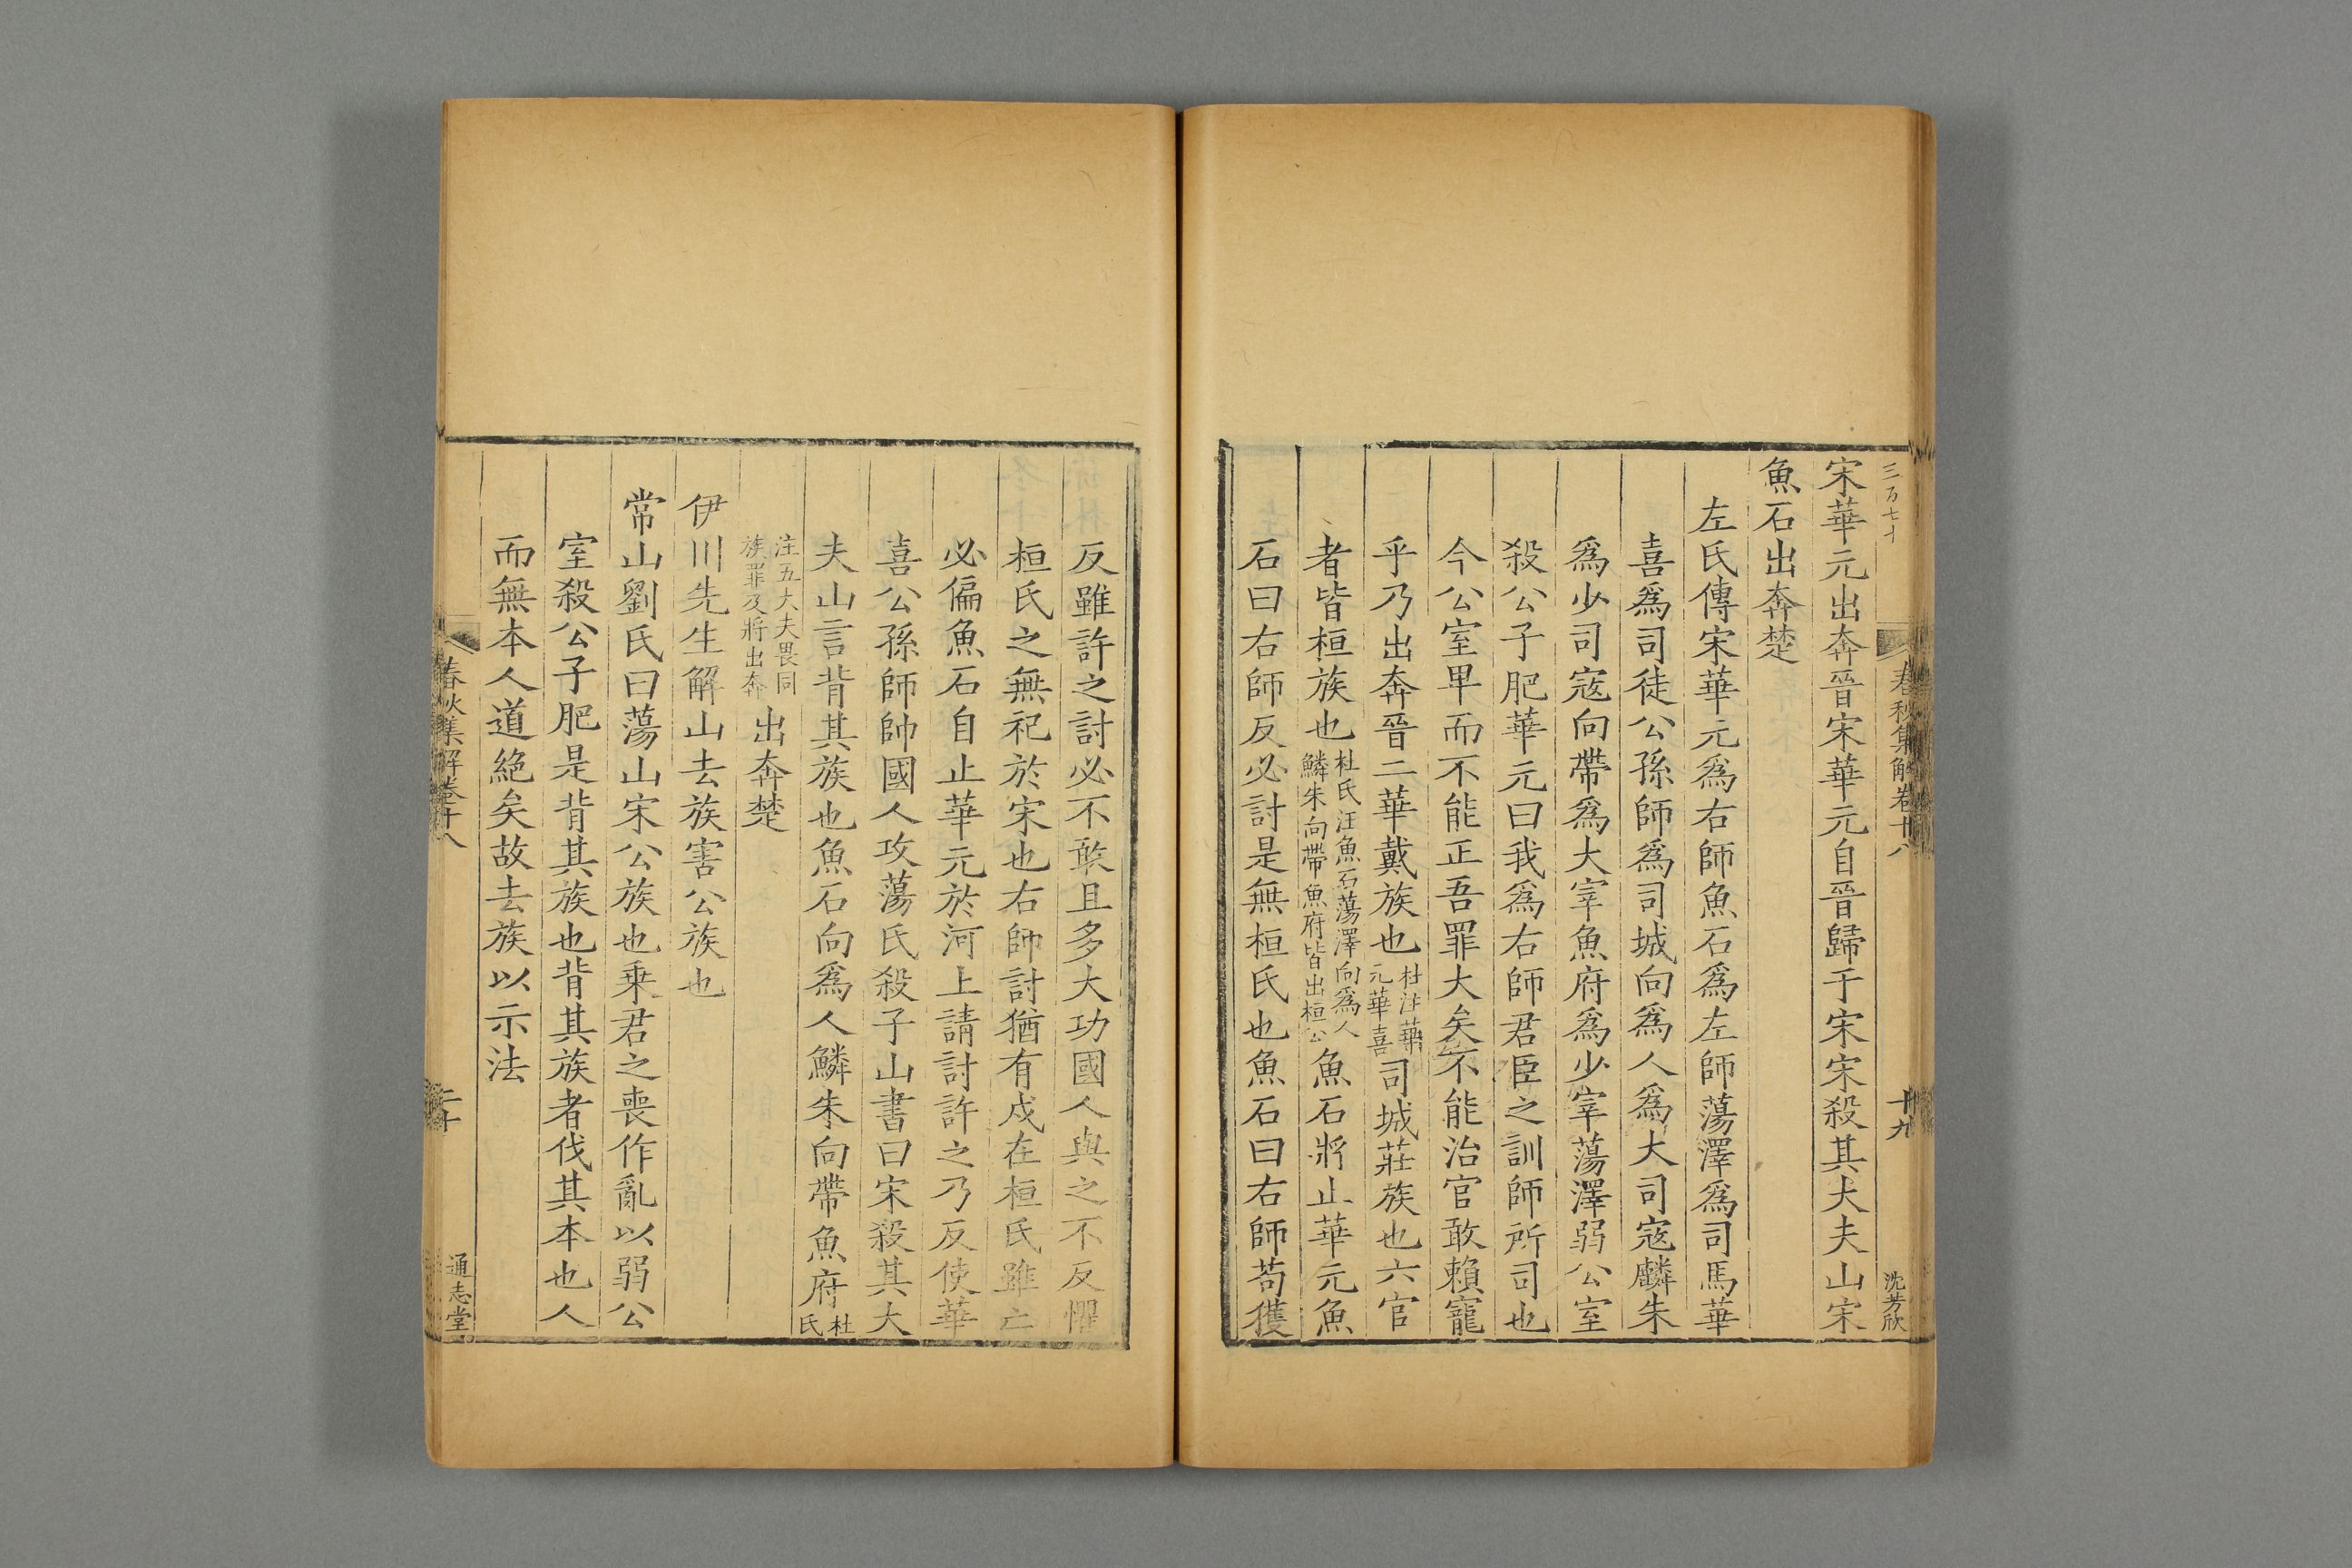 春秋集解卷十八
十九
沈芳欣
宋華元出奔晉宋華元自晉歸于宋宋殺其大夫山宋
魚石出奔楚
左氏傳宋華元爲右師魚石爲左師蕩澤爲司馬華
喜爲司徒公孫師爲司城向爲人爲大司寇鱗朱
爲少司寇向帶爲大宰魚府爲少宰蕩澤弱公室
殺公子肥華元曰我爲右師君臣之訓師所司也
今公室卑而不能正吾罪大矣不能治官敢賴寵
乎乃出奔晉二華戴族也杜注華元華喜司城莊族也六官
者皆桓族也杜氏注魚石蕩澤向爲人鱗朱向帶魚府皆出桓公魚石將止華元魚
石曰右師反必討是無桓氏也魚石曰右師苟獲
反雖許之討必不敢且多大功國人與之不反懼
桓氏之無祀於宋也右師討猶有戍在桓氏雖亡
必偏魚石自止華元於河上請討許之乃反使華
喜公孫師帥國人攻蕩氏殺子山書曰宋殺其大
夫山言背其族也魚石向爲人鱗朱向帶魚府杜氏
注五大夫畏同族罪及將出奔出奔楚
伊川先生解山去族害公族也
常山劉氏曰蕩山宋公族也乗君之喪作亂以弱公
室殺公子肥是背其族也背其族者伐其本也人
而無本人道絶矣故去族以示法
春秋集解卷十八
二十
通志堂